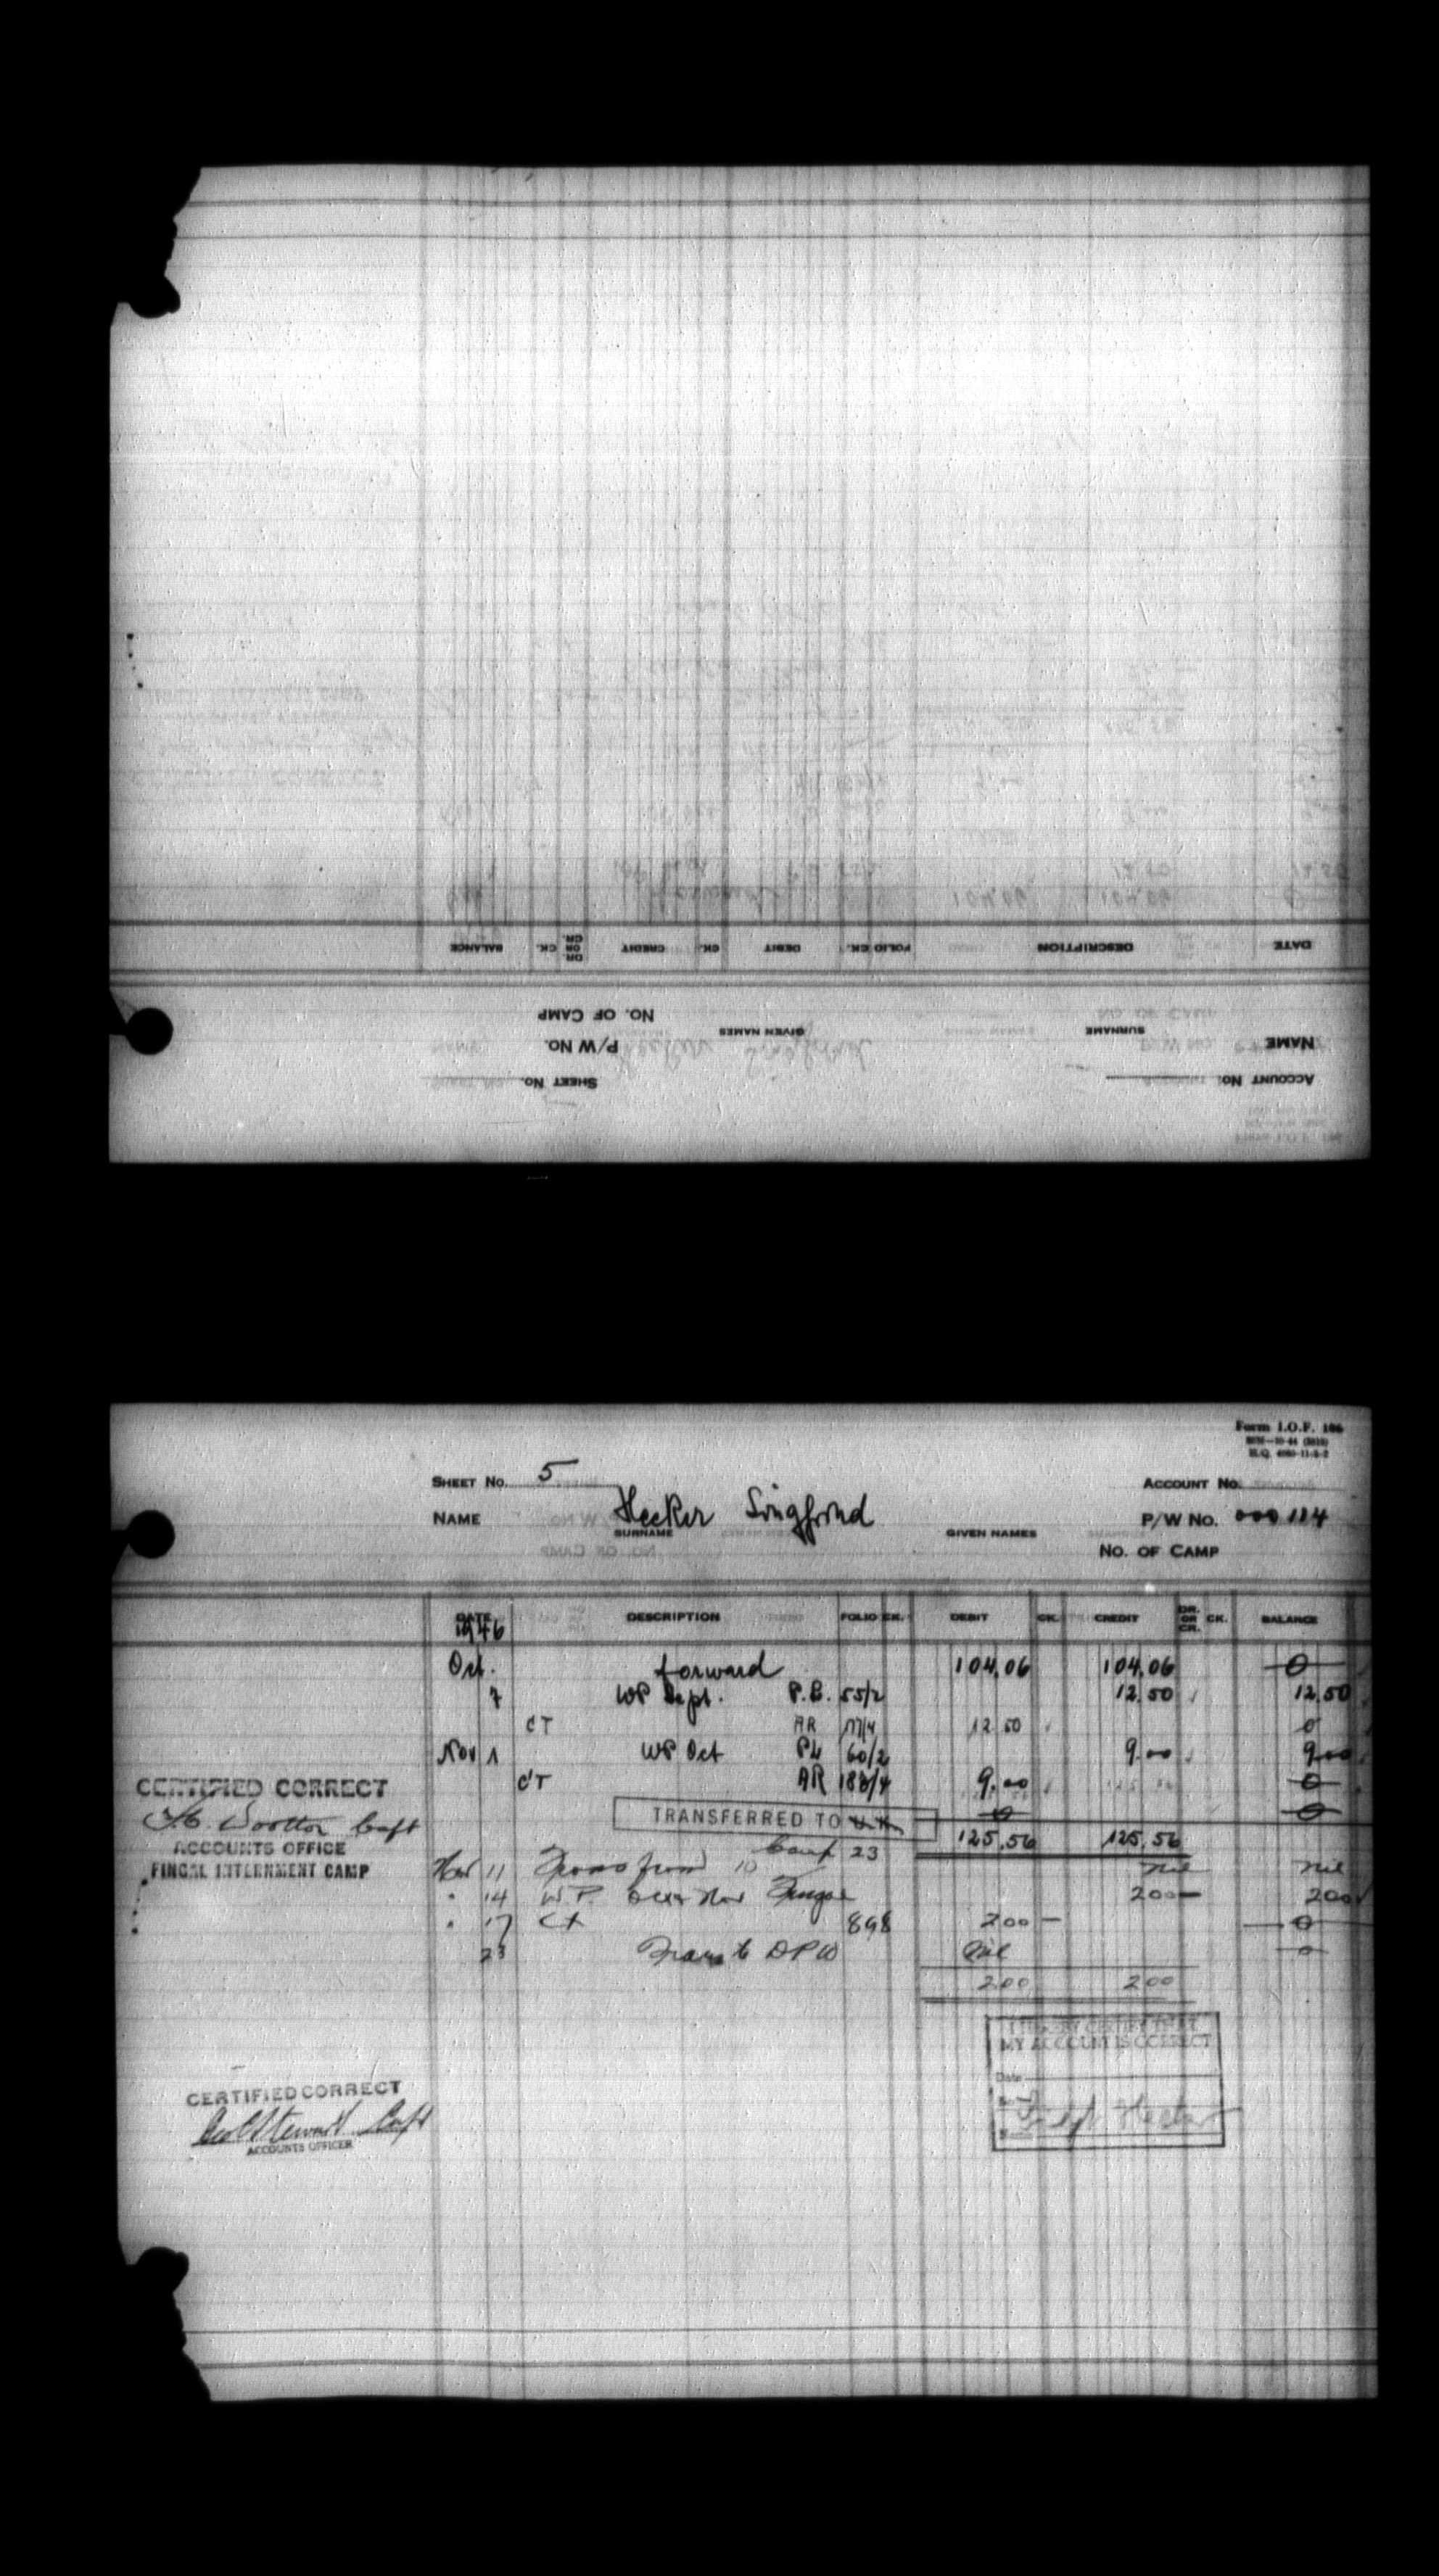 DATE
DESCRIPTION
FOLIO CK.
DEBIT
CK.
CREDIT
DR. OR CR.
CK.
BALANCE
NAME
SURNAME
GIVEN NAMES
P/W NO.
NO. OF CAMP
ACCOUNT NO.
SHEET NO.
Form I.O.F. 186
SHEET NO. 5 ACCOUNT NO.
NAME Hecker Singfrind P/W NO. 000 184
SURNAME GIVEN NAMES
NO. OF CAMP
DATE DESCRIPTION FOLIO CK. DEBIT CK. CREDIT DR. OR CR. CK. BALANCE
1946
Oct. forward 104.06 104.06 0
7 WP Sept. P.B. 55/2 12.50 12.50
CT AR 177/4 12.50 0
Nov 1 WP Oct PL 60/2 9.00 9.00
CT AR 188/4 9.00 0
CERTIFIED CORRECT
TRANSFERRED TO U.K. 0 0
Wootton Capt
125.56 125.56
ACCOUNTS OFFICE
FINGAL INTERNMENT CAMP
Camp 23
Nov 11 Trans from 10 nil nil
" 14 W.P. Nov Fingal 200 200
" 17 CT 898 200 0
23 Trans to DPW Nil 0
200 200
I HEREBY CERTIFY THAT
MY ACCOUNT IS CORRECT
Date
Hecker
CERTIFIED CORRECT
Stewart Capt
ACCOUNTS OFFICER